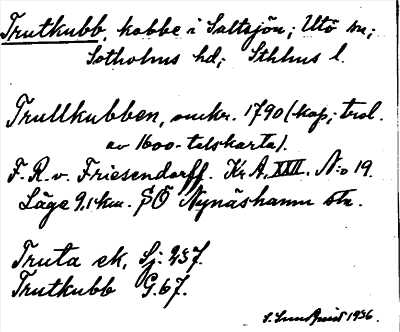 Trutkubb, kobbe i Saltsjön; Utö sn;
Sotholms hd; Sthlms l.
Trullkubben, omkr. 1790 (kop. trol.
av 1600-talskarta).
F. R. v. Friesendorff. Kr. A. XXIII. N:o 19.
Läge 9,1 km. SÖ Nynäshamn stn.
Truta ek, Sj: 237.
Trutkubb G. 67.
S. Lundquist 1936.